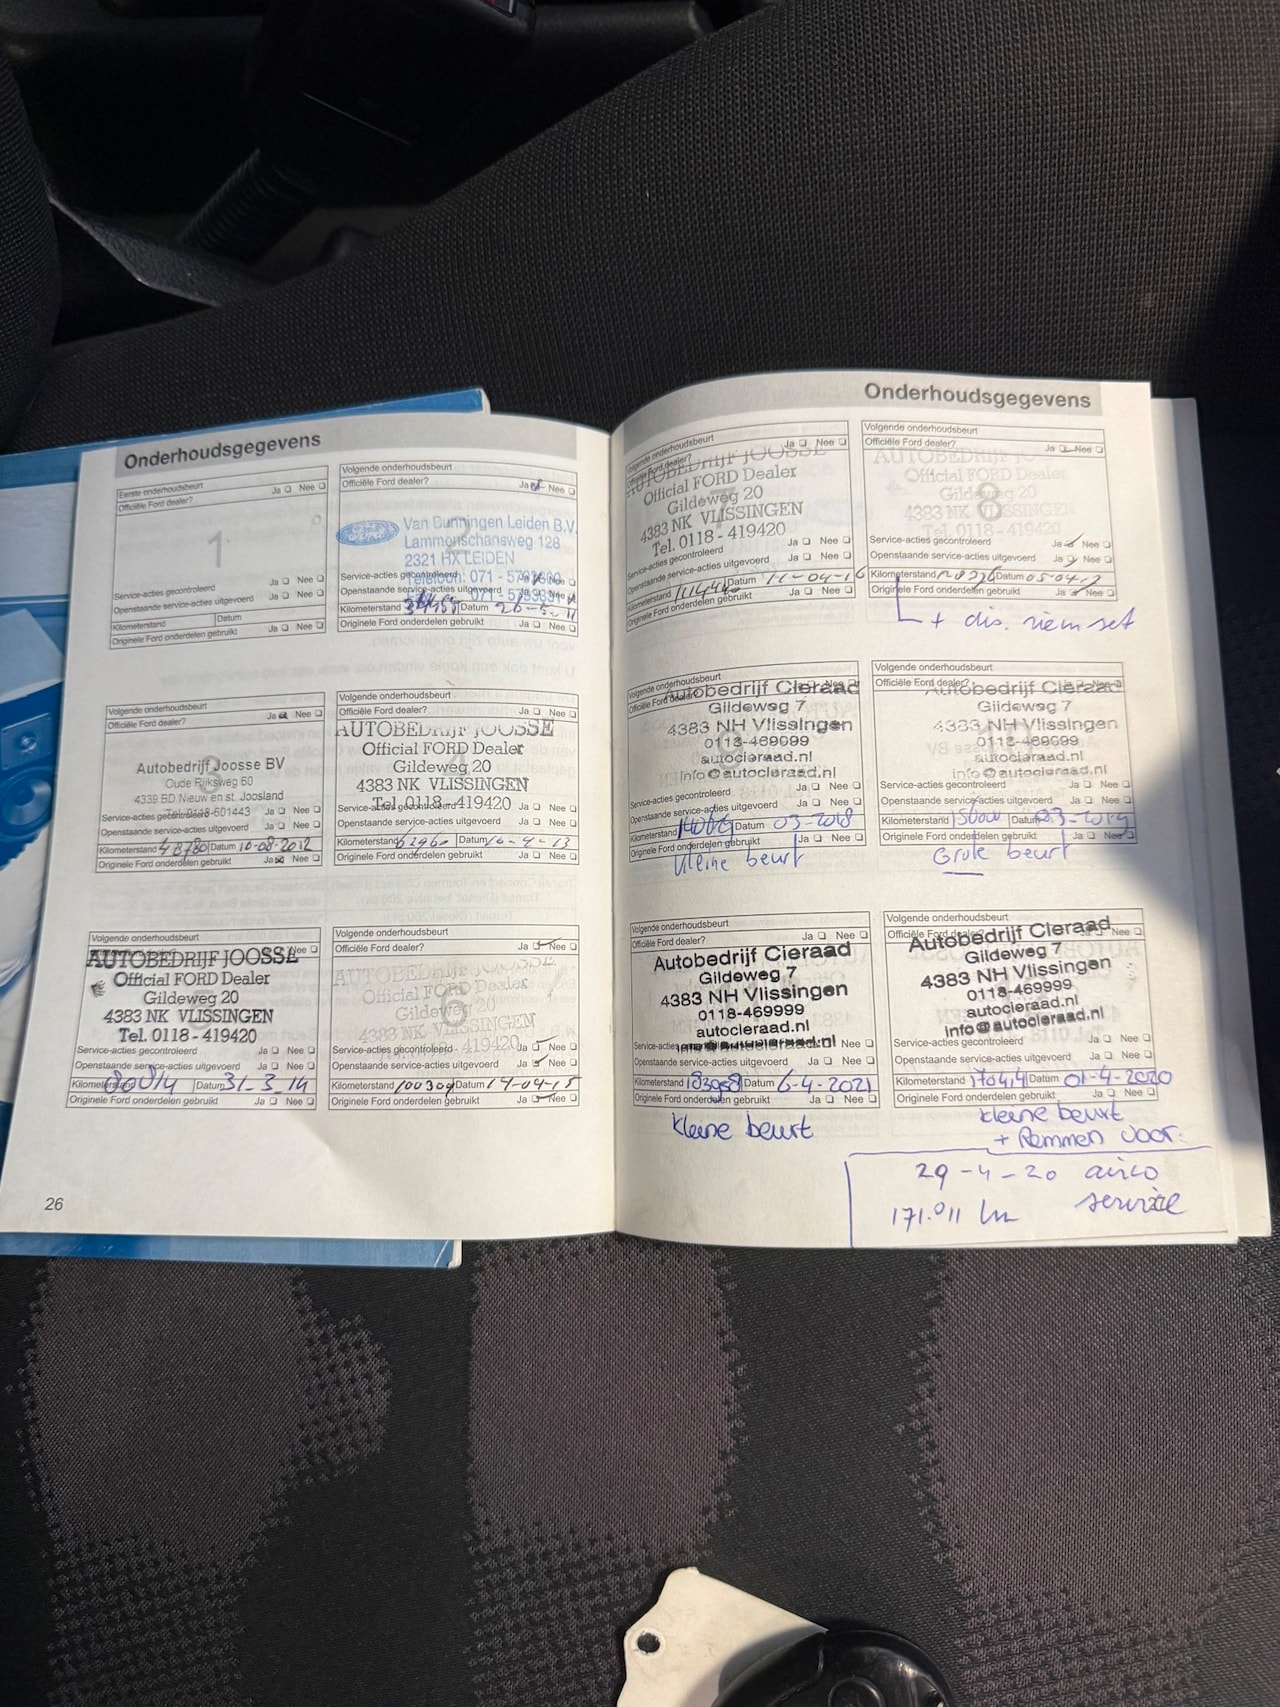 Onderhoudsgegevens
Eerste onderhoudsbeurt
Officiële Ford dealer? Ja Nee
1
Service-acties gecontroleerd Ja Nee
Openstaande service-acties uitgevoerd Ja Nee
Kilometerstand Datum
Originele Ford onderdelen gebruikt Ja Nee
Volgende onderhoudsbeurt
Officiële Ford dealer? Ja Nee
2
Ford
Van Bunningen Leiden B.V.
Lammenschansweg 128
2321 HX LEIDEN
Telefoon: 071 -
Service-acties gecontroleerd Nee
Openstaande service-acties uitgevoerd
Kilometerstand Datum 26-5-11
Originele Ford onderdelen gebruikt Ja Nee
Volgende onderhoudsbeurt
Officiële Ford dealer? Ja Nee
3
Autobedrijf Joosse BV
Oude Rijksweg 60
4339 BD Nieuw en st. Joosland
Tel. 0118-601443
Service-acties gecontroleerd Ja Nee
Openstaande service-acties uitgevoerd Ja Nee
Kilometerstand 48780 Datum 10-08-2012
Originele Ford onderdelen gebruikt Ja Nee
Volgende onderhoudsbeurt
Officiële Ford dealer? Ja Nee
4
AUTOBEDRIJF JOOSSE
Official FORD Dealer
Gildeweg 20
4383 NK VLISSINGEN
Tel. 0118 - 419420
Service-acties gecontroleerd Ja Nee
Openstaande service-acties uitgevoerd Ja Nee
Kilometerstand 62960 Datum 16-4-13
Originele Ford onderdelen gebruikt Ja Nee
Volgende onderhoudsbeurt
Nee
AUTOBEDRIJF JOOSSE
Official FORD Dealer
Gildeweg 20
4383 NK VLISSINGEN
Tel. 0118 - 419420
5
Service-acties gecontroleerd Ja Nee
Openstaande service-acties uitgevoerd Ja Nee
Kilometerstand Datum 31-3-14
Originele Ford onderdelen gebruikt Ja Nee
Volgende onderhoudsbeurt
Officiële Ford dealer? Ja Nee
6
AUTOBEDRIJF JOOSSE
Official FORD Dealer
Gildeweg 20
4383 NK VLISSINGEN
Tel. 0118 - 419420
Service-acties gecontroleerd Ja Nee
Openstaande service-acties uitgevoerd Ja Nee
Kilometerstand 100309 Datum 14-04-15
Originele Ford onderdelen gebruikt Ja Nee
26
Onderhoudsgegevens
Volgende onderhoudsbeurt
Officiële Ford dealer? Ja Nee
AUTOBEDRIJF JOOSSE
Official FORD Dealer
Gildeweg 20
4383 NK VLISSINGEN
Tel. 0118 - 419420
Service-acties gecontroleerd Ja Nee
Openstaande service-acties uitgevoerd Ja Nee
Kilometerstand Datum 11-04-16
Originele Ford onderdelen gebruikt Ja Nee
Volgende onderhoudsbeurt
Officiële Ford dealer? Ja Nee
8
AUTOBEDRIJF JOOSSE
Official FORD Dealer
Gildeweg 20
4383 NK VLISSINGEN
Tel. 0118 - 419420
Service-acties gecontroleerd Ja Nee
Openstaande service-acties uitgevoerd Ja Nee
Kilometerstand Datum
Originele Ford onderdelen gebruikt Ja Nee
+ dis. riem set
Volgende onderhoudsbeurt
Officiële Ford dealer? Ja Nee
9
Autobedrijf Cieraad
Gildeweg 7
4383 NH Vlissingen
0118-469999
autocieraad.nl
info@autocieraad.nl
Service-acties gecontroleerd Ja Nee
Openstaande service-acties uitgevoerd Ja Nee
Kilometerstand Datum 03-2018
Originele Ford onderdelen gebruikt Ja Nee
Kleine beurt
Volgende onderhoudsbeurt
Officiële Ford dealer? Ja Nee
10
Autobedrijf Cieraad
Gildeweg 7
4383 NH Vlissingen
0118-469999
autocieraad.nl
info@autocieraad.nl
Service-acties gecontroleerd Ja Nee
Openstaande service-acties uitgevoerd Ja Nee
Kilometerstand Datum 03-2019
Originele Ford onderdelen gebruikt Ja Nee
Grote beurt
Volgende onderhoudsbeurt
Officiële Ford dealer? Ja Nee
Autobedrijf Cieraad
Gildeweg 7
4383 NH Vlissingen
0118-469999
autocieraad.nl
info@autocieraad.nl
Service-acties Nee
Openstaande service-acties uitgevoerd Ja Nee
Kilometerstand 183958 Datum 6-4-2021
Originele Ford onderdelen gebruikt Ja Nee
kleine beurt
Volgende onderhoudsbeurt
Officiële Ford dealer? Nee
Autobedrijf Cieraad
Gildeweg 7
4383 NH Vlissingen
0118-469999
autocieraad.nl
info@autocieraad.nl
Service-acties gecontroleerd Ja Nee
Openstaande service-acties uitgevoerd Ja Nee
Kilometerstand 170414 Datum 01-4-2020
Originele Ford onderdelen gebruikt Ja Nee
kleine beurt
+ Remmen voor.
29-4-20 airco
171.011 km service